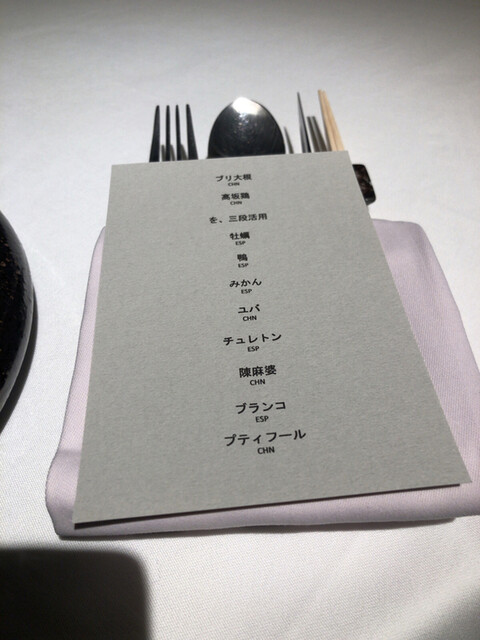 ブリ大根
CHN
高坂鶏
CHN
を、三段活用
牡蠣
ESP
鴨
ESP
みかん
ESP
ユバ
CHN
チュレトン
ESP
陳麻婆
CHN
ブランコ
ESP
プティフール
CHN